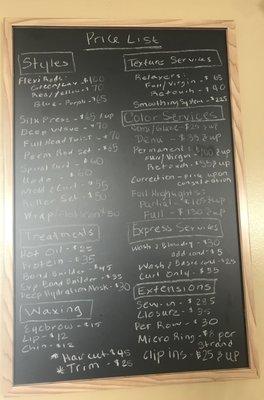 Price List
Styles
Flexi Rods:
Green/Gray $100
Red/Yellow $70
Blue-Purple $65
Silk Press - $65 & up
Deep Wave - $70
Full Head Twist - $70
Perm Rod Set - $65
Spiral Curl - $60
Updo - $60
Mold & Curl - $55
Roller Set - $50
Wrap $50
Treatments
Hot Oil - $25
Protein - $35
Bond Builder - $45
Bond Builder - $35
Deep Hydration Mask - $30
Waxing
Eyebrow - $15
Lip - $12
Chin - $12
* Haircut - $45
* Trim - $25
Texture Services
Relaxers:
Full/Virgin - $65
Retouch - $40
Smoothing System - $225
Color Services
Semi/Glaze - $25 & up
Demi - $35 & up
Permanent:
Full/Virgin - $100 & up
Retouch - $55 & up
Correction - price upon
consultation
Full Highlights:
Partial - $105 & up
Full - $130 & up
Express Services
Wash & Blowdry - $30
add cond $5
Wash & Basic cond $25
Curl Only - $35
Extensions
Sew-in - $285
Closure - $35
Per Row - $30
Micro Ring - $8 per
Strand
Clip Ins - $25 & up